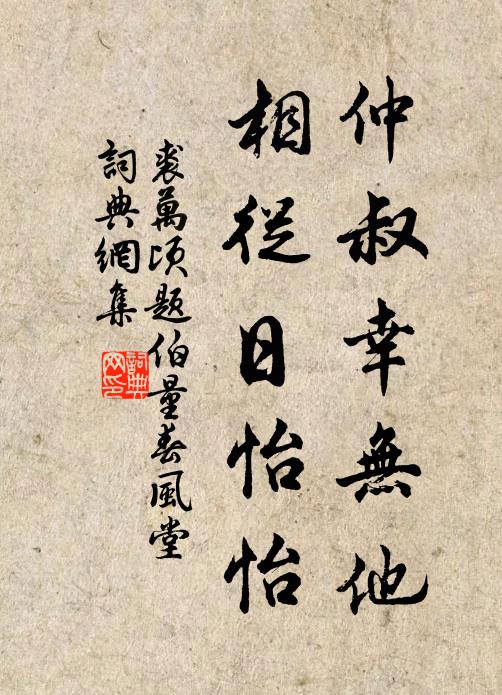 仲叔幸無他
相從日怡怡
裘萬頃題伯量春風堂
詞典網集
詞典網印